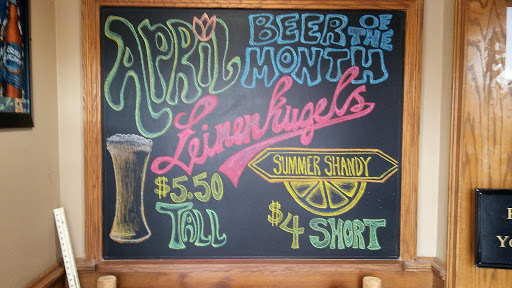 APRIL
BEER OF THE
MONTH
Leinenkugels
SUMMER SHANDY
$5.50
TALL
$4 SHORT